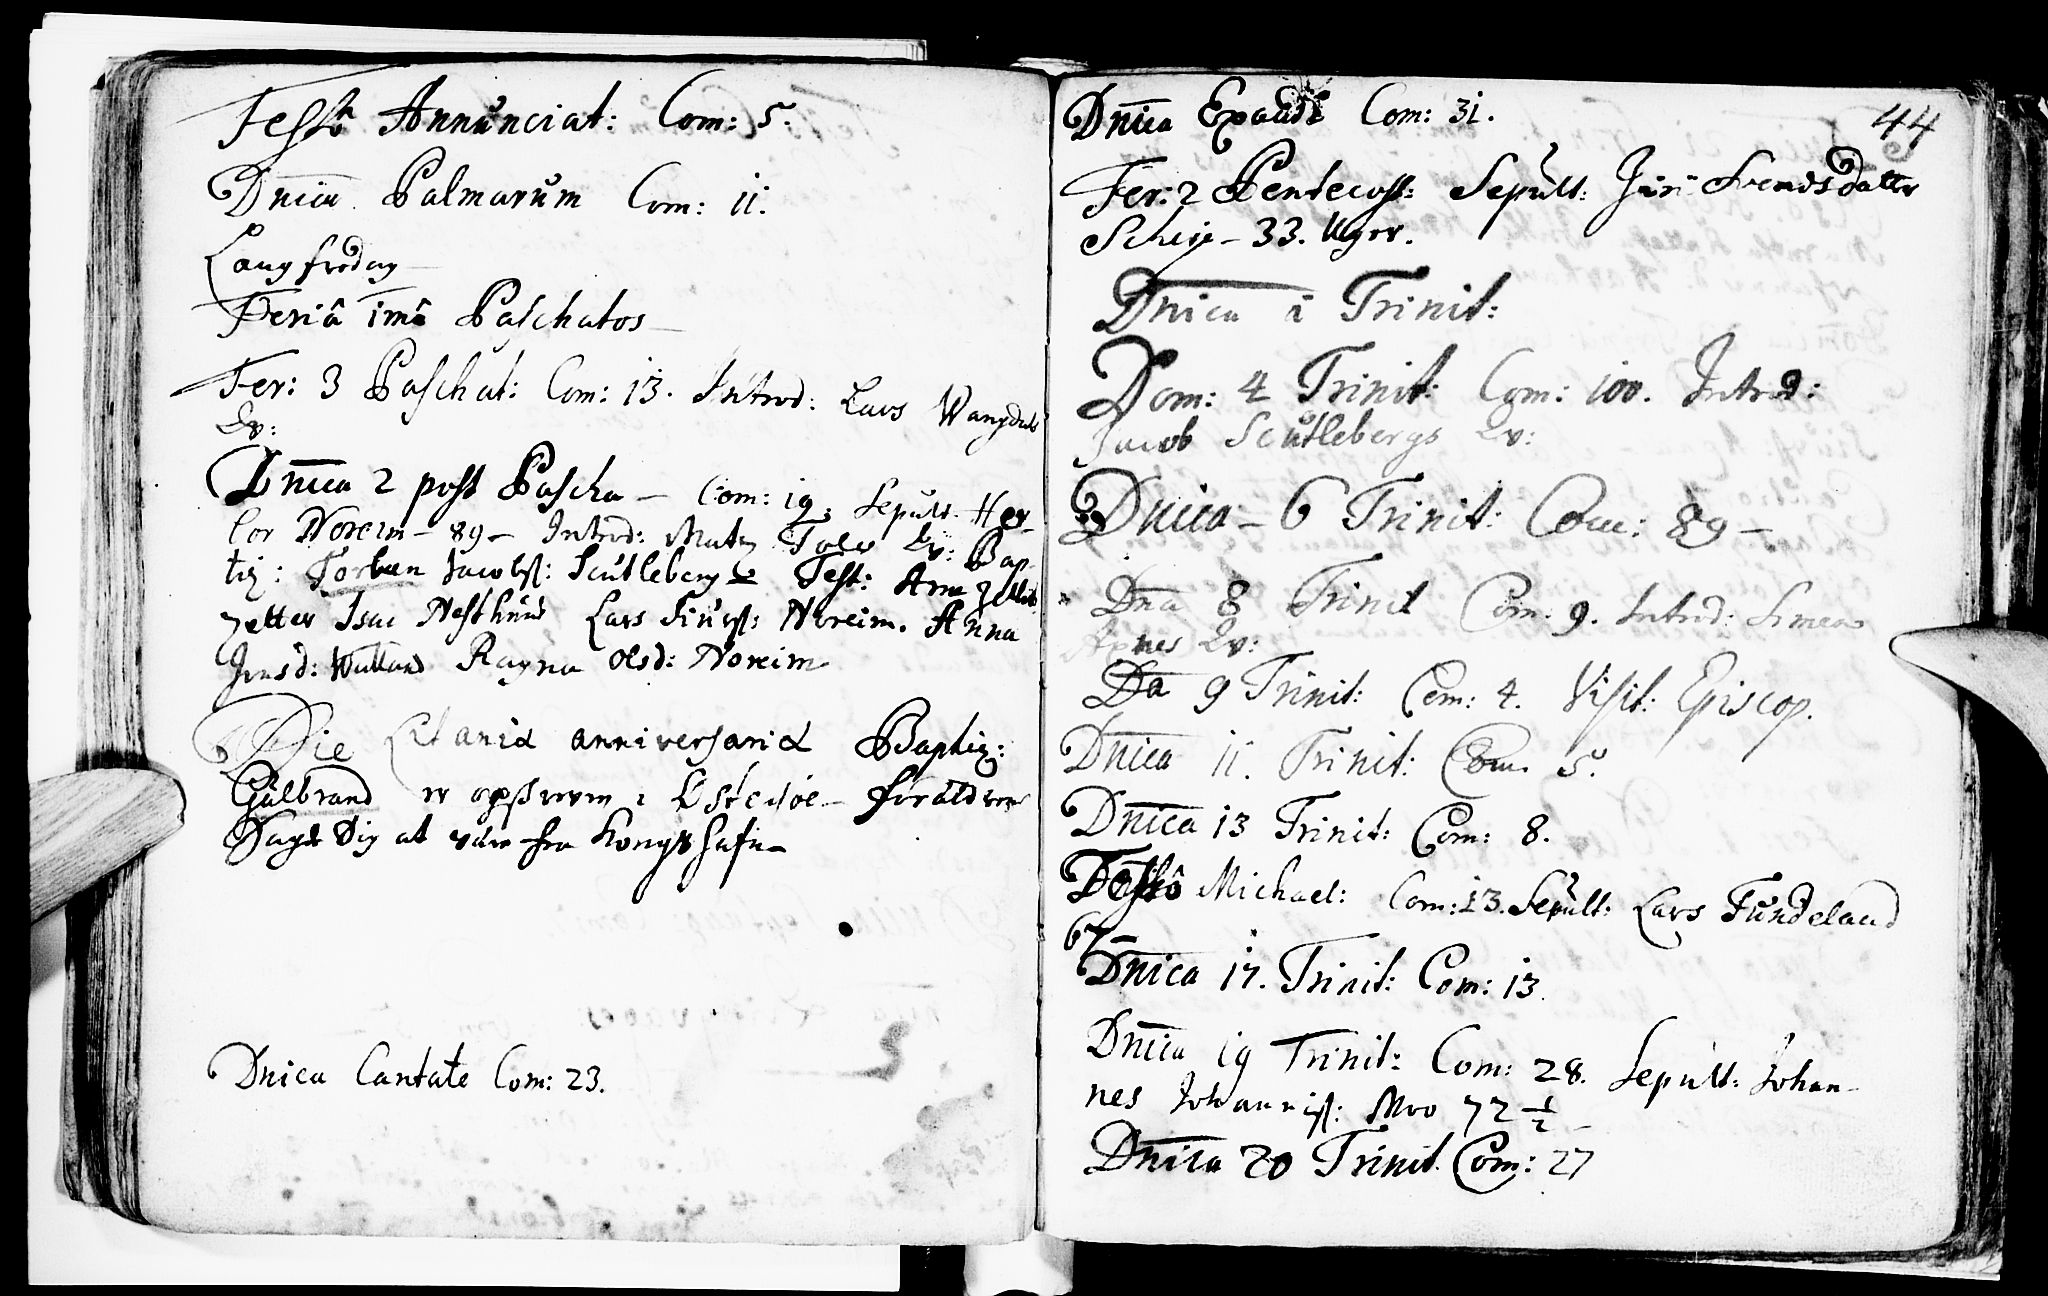 Festo Annunciat: Com: 5.
Dnica Palmarum Com: 11.
Langfredag
Feriâ imâ Paschatos
Fer: 3 Paschat: Com: 13. Introd: Lars Wangdals
Qv:
Dnica 2 post Pascha – Com: 19. Sepult. Her-
lor Noreim – 89 – Introd: Mats Qv: Bap-
tiz: Torben Jacobß: Scutleberg Test: Arne
Isac Nesthuus Lars Siurß: Noreim. Anna
Jonsd: Ragna Olsd: Noreim
Die Litaniæ anniversariæ Baptiz:
Gulbrand er i forældrene
Sagde Sig at være fra Kongshafn
Dnica Cantate Com: 23.
44
Dnica Exaudi Com: 31.
Fer: 2 Pentecost: Sepult: Juri Svendsdatter
33. Uger.
Dnica 1 Trinit:
Dom: 4 Trinit: Com: 100. Introd:
Jacob Scutlebergs Qv:
Dnica – 6 Trinit: Com: 89 –
Dna 8 Trinit Com: 9. Introd: Simen
Axnes Qv:
Da 9 Trinit: Com: 4. Visit: Episcop.
Dnica 11. Trinit: Com. 5.
Dnica 13 Trinit: Com: 8.
Festô Michael: Com: 13. Sepult: Lars Fundeland
67 –
Dnica 17. Trinit: Com: 13.
Dnica 19 Trinit: Com: 28. Sepult: Johan-
nes Johanniß: Moo 72 1/2
Dnica 20 Trinit. Com: 27